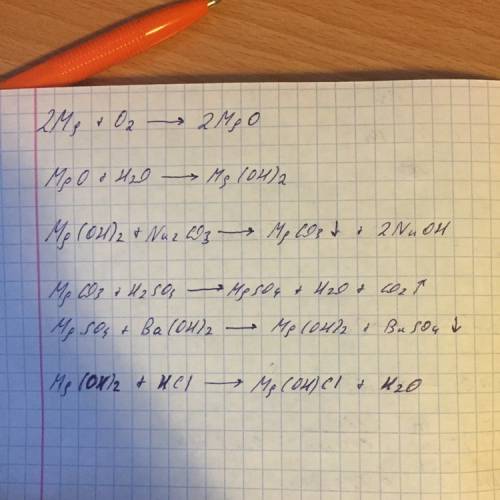 2Mg + O2 → 2MgO
MgO + H2O → Mg(OH)2
Mg(OH)2 + Na2CO3 → MgCO3↓ + 2NaOH
MgCO3 + H2SO4 → MgSO4 + H2O + CO2↑
MgSO4 + Ba(OH)2 → Mg(OH)2 + BaSO4↓
Mg(OH)2 + HCl → Mg(OH)Cl + H2O